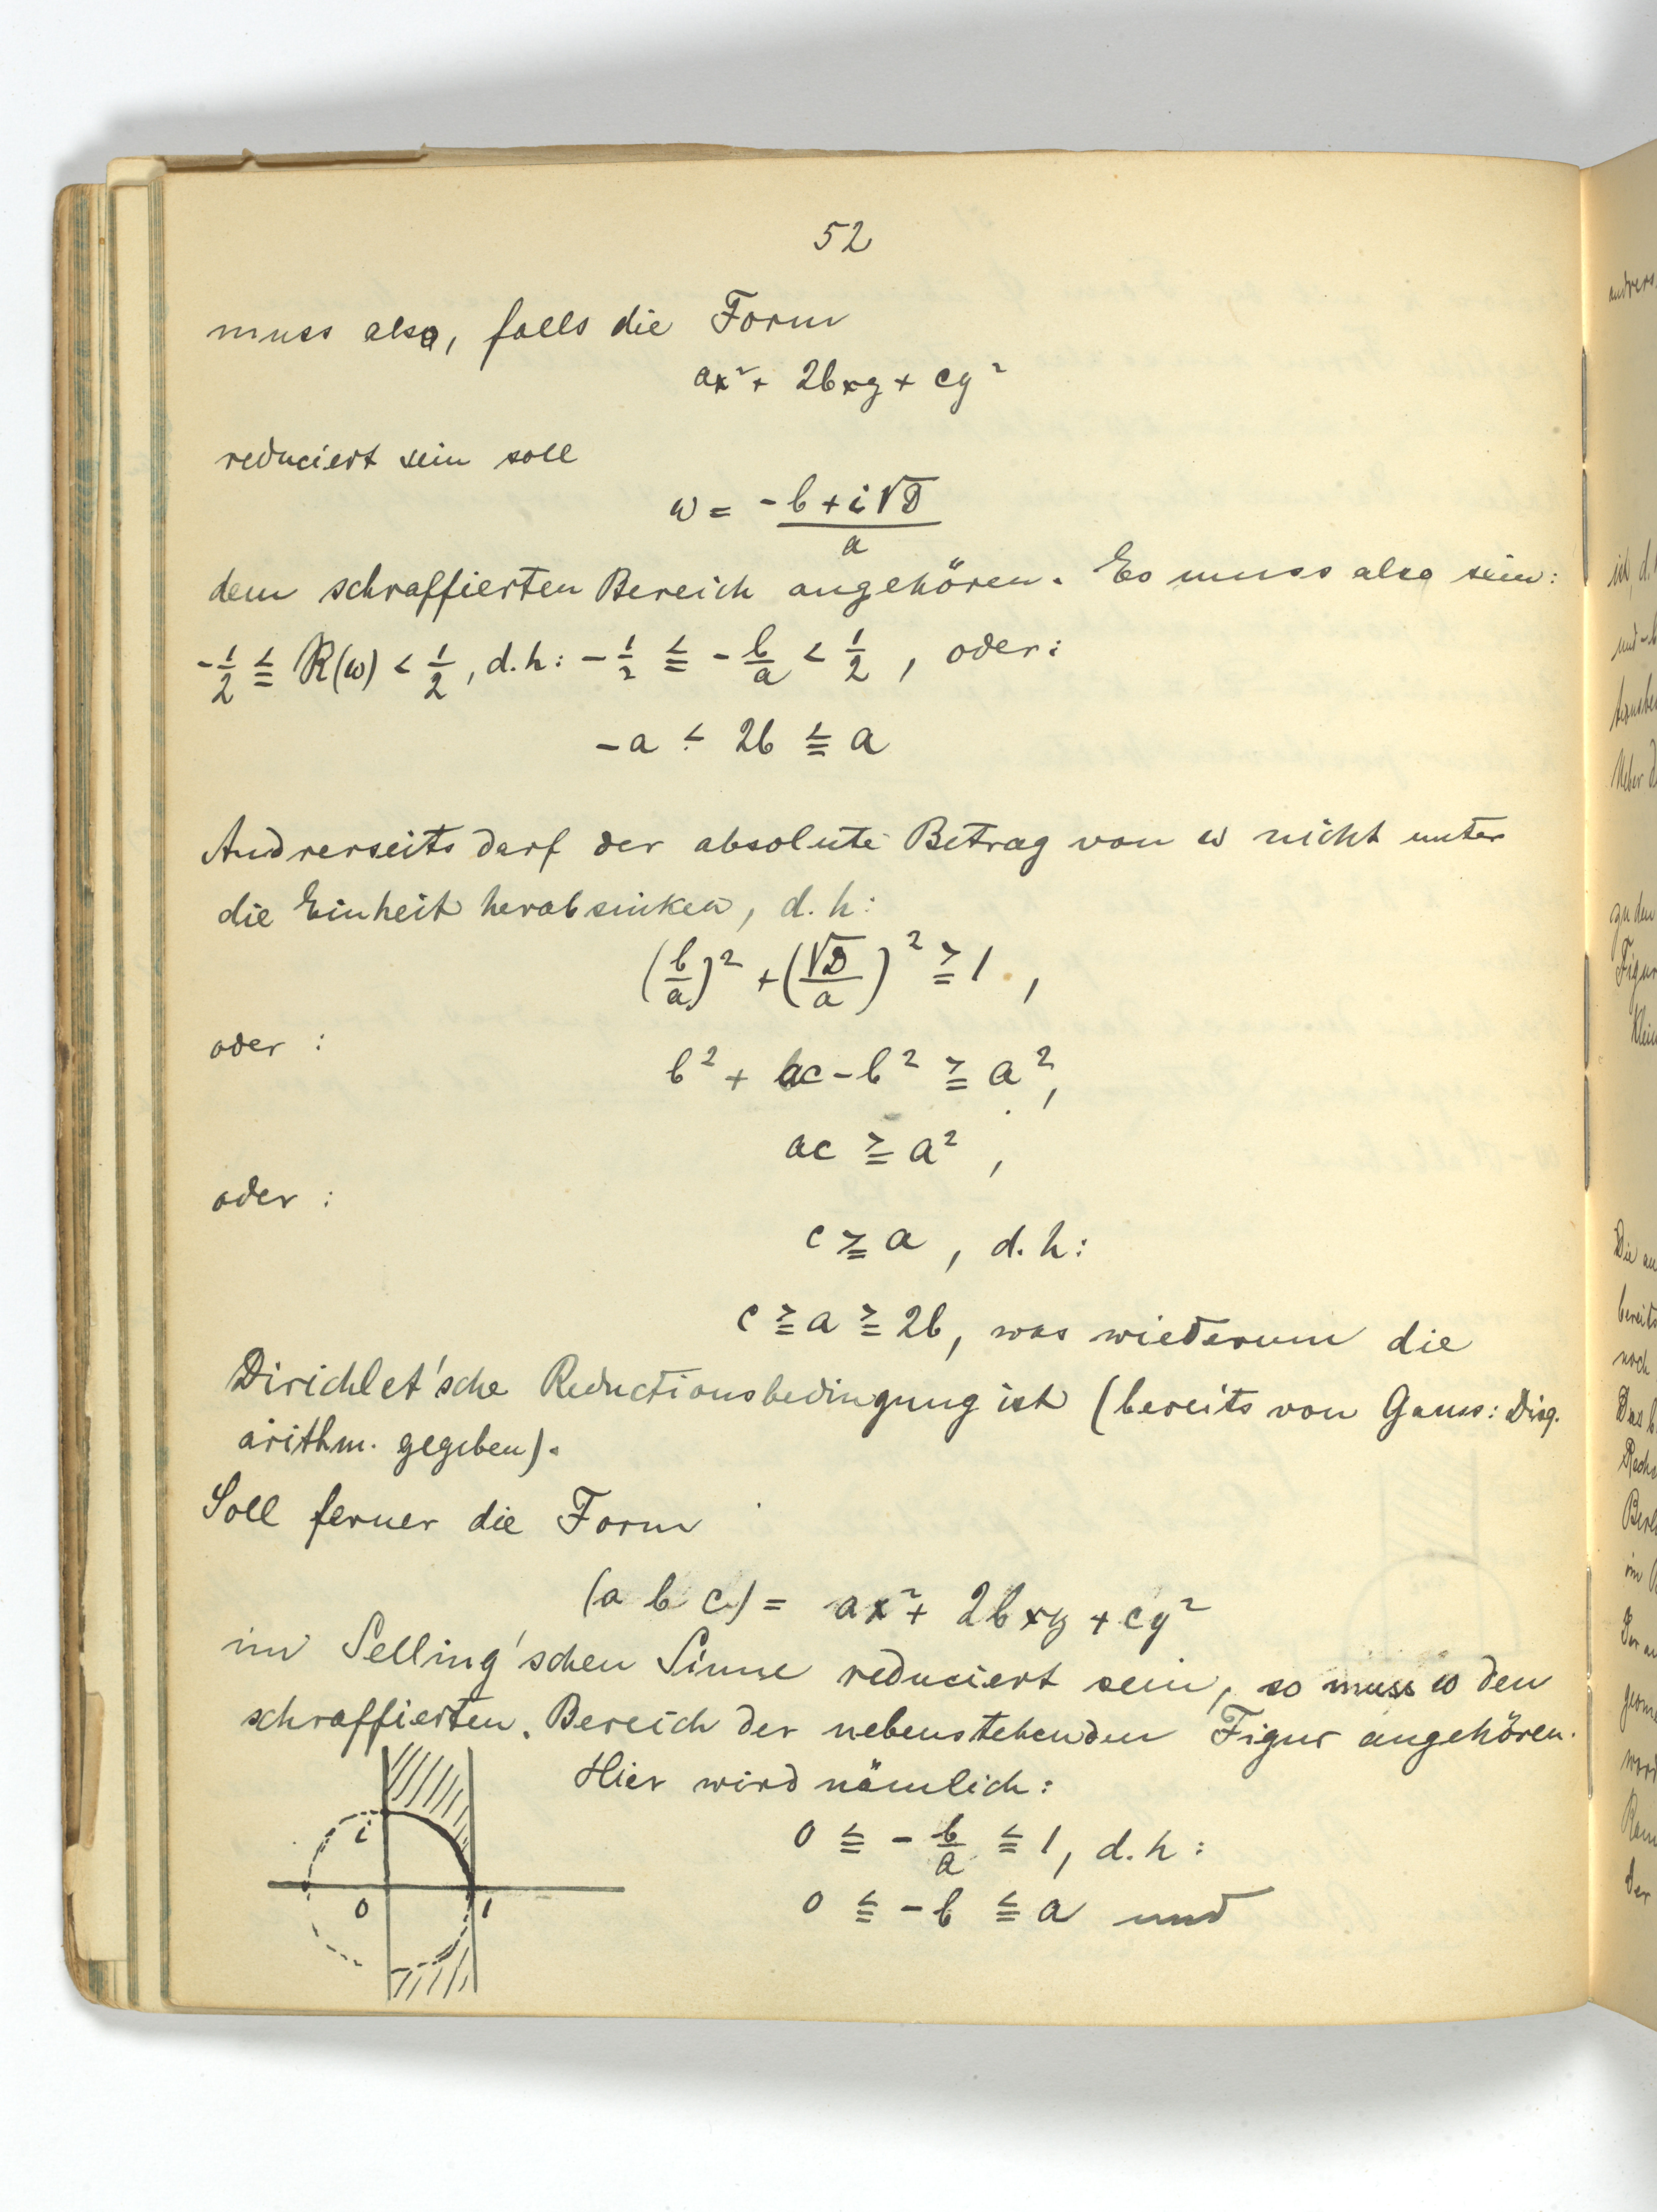 52
muss also, falls die Form
ax² + 2bxy + cy²
reduciert sein soll
ω = (-b + i√D)/a
dem schraffierten Bereich angehören. Es muss also sein:
-1/2 ≦ R(ω) < 1/2, d.h: -1/2 ≦ -b/a < 1/2, oder:
-a < 2b ≦ a
Andrerseits darf der absolute Betrag von ω nicht unter
die Einheit herabsinken, d.h:
(b/a)² + (√D/a)² ≧ 1,
oder:
b² + ac - b² ≧ a²,
ac ≧ a²,
oder:
c ≧ a, d.h:
c ≧ a ≧ 2b, was wiederum die
Dirichlet'sche Reductionsbedingung ist (bereits von Gauss: Disq.
arithm. gegeben).
Soll ferner die Form
(a b c) = ax² + 2bxy + cy²
im Selling'schen Sinne reduciert sein, so muss ω den
schraffierten Bereich der nebenstehenden Figur angehören.
Hier wird nämlich:
0 ≦ -b/a ≦ 1, d.h:
0 ≦ -b ≦ a und
i
0 1
andrers
ist, d.h
Ueber d
zu den
Figur
Klein
Die an
bereits
noch
Das b
im
der